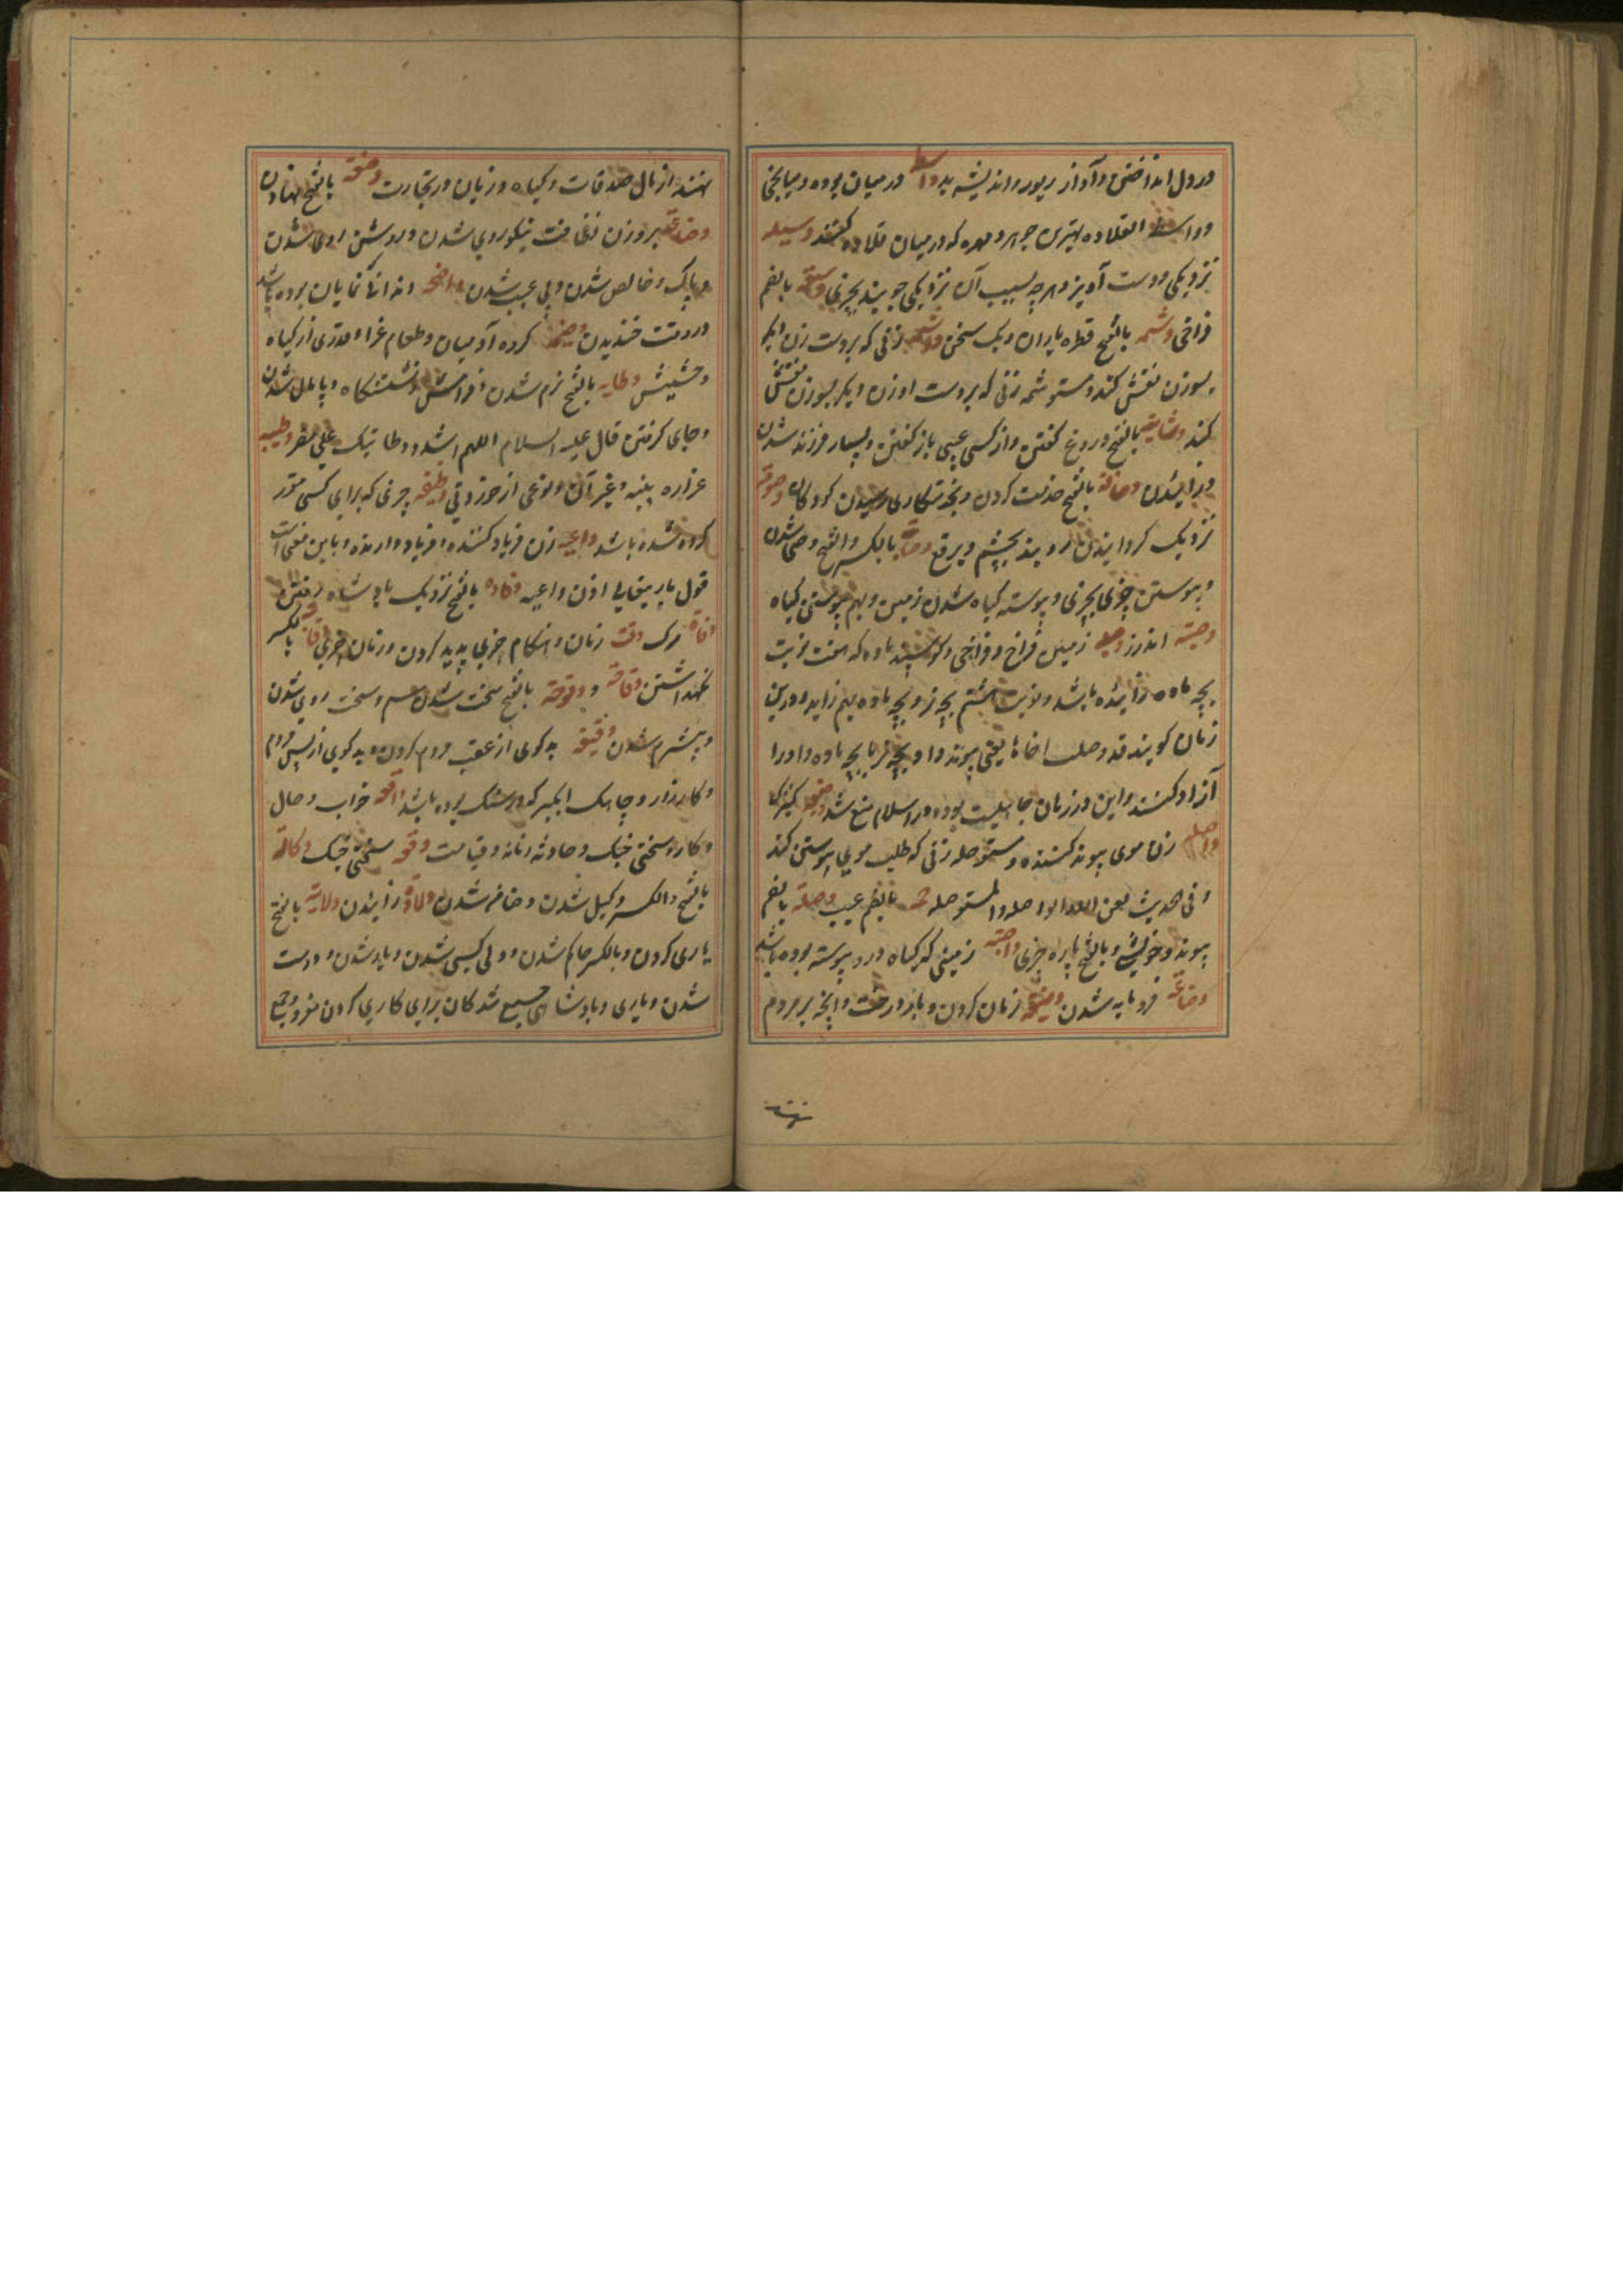 در دل انداختن و آواز زیور و اندیشه بد واسط در میان بوده و میانجی
و واسطة القلاده بهترین جوهر و مهره که در میان قلاده کنند وسیله
نزدیکی و دست آویز و هرچه بسبب آن نزدیکی جویند بچیزی وسعة بالضم
فراخی وشمه بالفتح قطره باران و یک سخن واشمه زنی که بر دست زن دیگر
بسوزن نقش کند و مستوشمه زنی که بر دست او زن دیگر بسوزن نقش
کند وشایة بالفتح دروغ گفتن و از کسی عیبی باز گفتن و بسیار فرزند شدن
بالفتح خدمت کردن و بخدمتکاری رسیدن کودکان
نزدیک گردانیدن روبند بچشم و برقع وصایة بالکسر والفتح وصی شدن
و پیوستن چیزی بچیزی و پیوسته گیاه شدن زمین و بهم پیوستن گیاه
وصیة اندرز وصیله زمین فراخ و فراخی و گوسپند ماده که هفت نوبت
بچه ماده زائیده باشد و نوبت هشتم بچه نر و بچه ماده بهم زاید و درین
زمان گویند قد وصلت اخاها یعنی پیوند داد بچه نر با بچه ماده و او را
آزاد کنند و این در زمان جاهلیت بوده در اسلام منع شد
واصله زن موی پیوند کننده و مستوصله زنی که طلب موی پیوستن کند
و فی حدیث لعن الله الواصله والمستوصله بالضم عیب وصلة بالضم
پیوند و خویشی و بالفتح پاره چیزی واصیة زمینی که گیاه درو پیوسته بوده باشد
وضاعة فرومایه شدن وضیعة زیان کردن و بار درخت و آنچه بر مردم
نهند
نهند از مال صدقات و گیاه و زیان در تجارت وضعة بالفتح نهادن
وضاءة بر وزن نظافت نیکو روی شدن و روشن روی شدن
و پاک و خالص شدن و بی عیب شدن واضحه دندانها که نمایان بوده باشد
در وقت خندیدن وضیمه گروه آدمیان و طعام عزا و قدری از گیاه
و حشیش وطایه بالفتح نرم شدن و فراش و نشستنگاه و پایمال شدن
و جای گرفتن قال علیه السلام اللهم اشدد وطاتیک علی مضر وطیئه
غراره پنبه و غیر آن و نوعی از خوردنی وظیفه چیزی که برای کسی مقرر
کرده شده باشد واعیه زن فریاد کننده و فریاد و آوازنده و باین معنی است
قول باریتعالی اذن واعیه وفاده بالفتح نزدیک پادشاه رفتن
وفاة مرگ وقت زمان و هنگام چیزی پدید کردن و زمان چیزی وقایة بالکسر
نگهداشتن وقاحة و وقوحة بالفتح سخت شدن سم و سخت روی شدن
و بیشرم شدن وقیعة بدگوی از عقب مردم کردن و بدگوی از پس مردم
و کارزار و چاهک آبگیر که در سنگ بوده باشد واقعه خواب و حال
و کار و سختی جنگ و حادثه زمانه و قیامت وقعه سختی جنگ وکالة
بالفتح والکسر وکیل شدن و ضامن شدن ولادة زائیدن ولایة بالفتح
یاری کردن و بالکسر حاکم شدن و ولی کسی شدن و یار شدن و دوست
شدن و یاری و پادشاهی جمیع شدگان برای کاری کردن مفرد و جمع